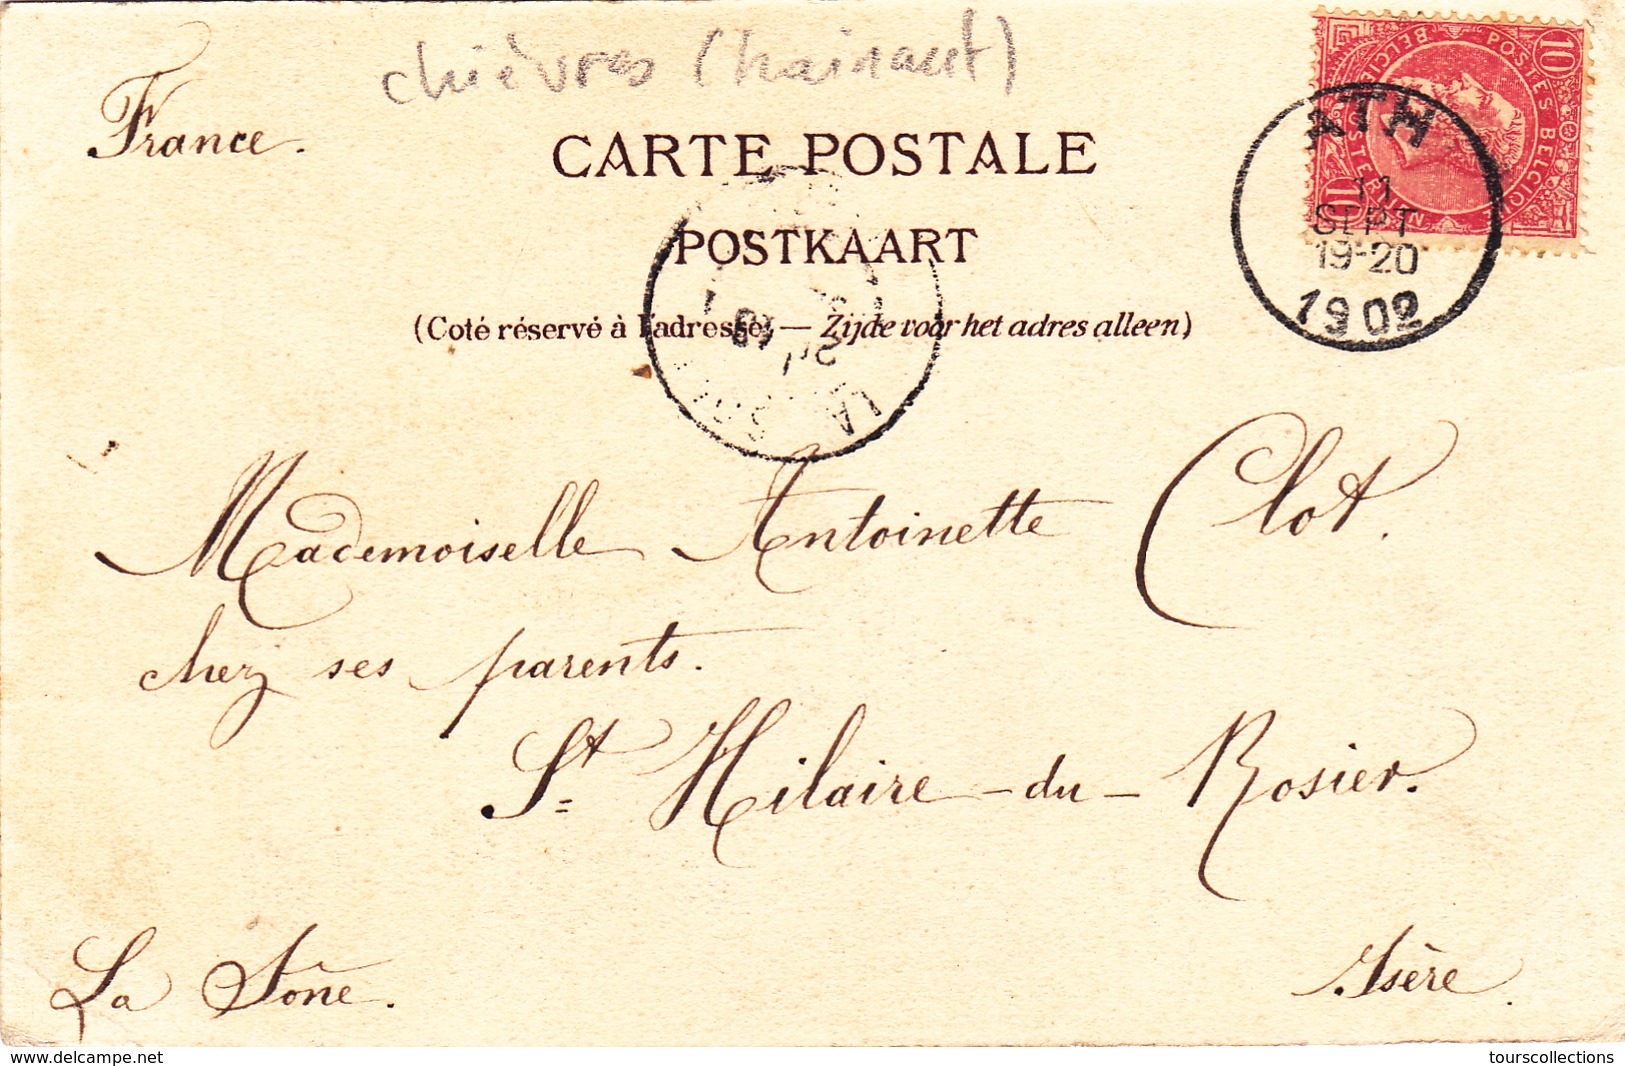 chièvres (hainaut)
France.
CARTE POSTALE
POSTKAART
(Coté réservé à l'adresse) — Zijde voor het adres alleen)
10 POSTES BELGIQUE 10
ATH
11
SEPT
19-20
1902
Mademoiselle Antoinette Clot.
chez ses parents.
St Hilaire-du-Rosier.
La Sône. Isère.
delcampe.net
tourscollections